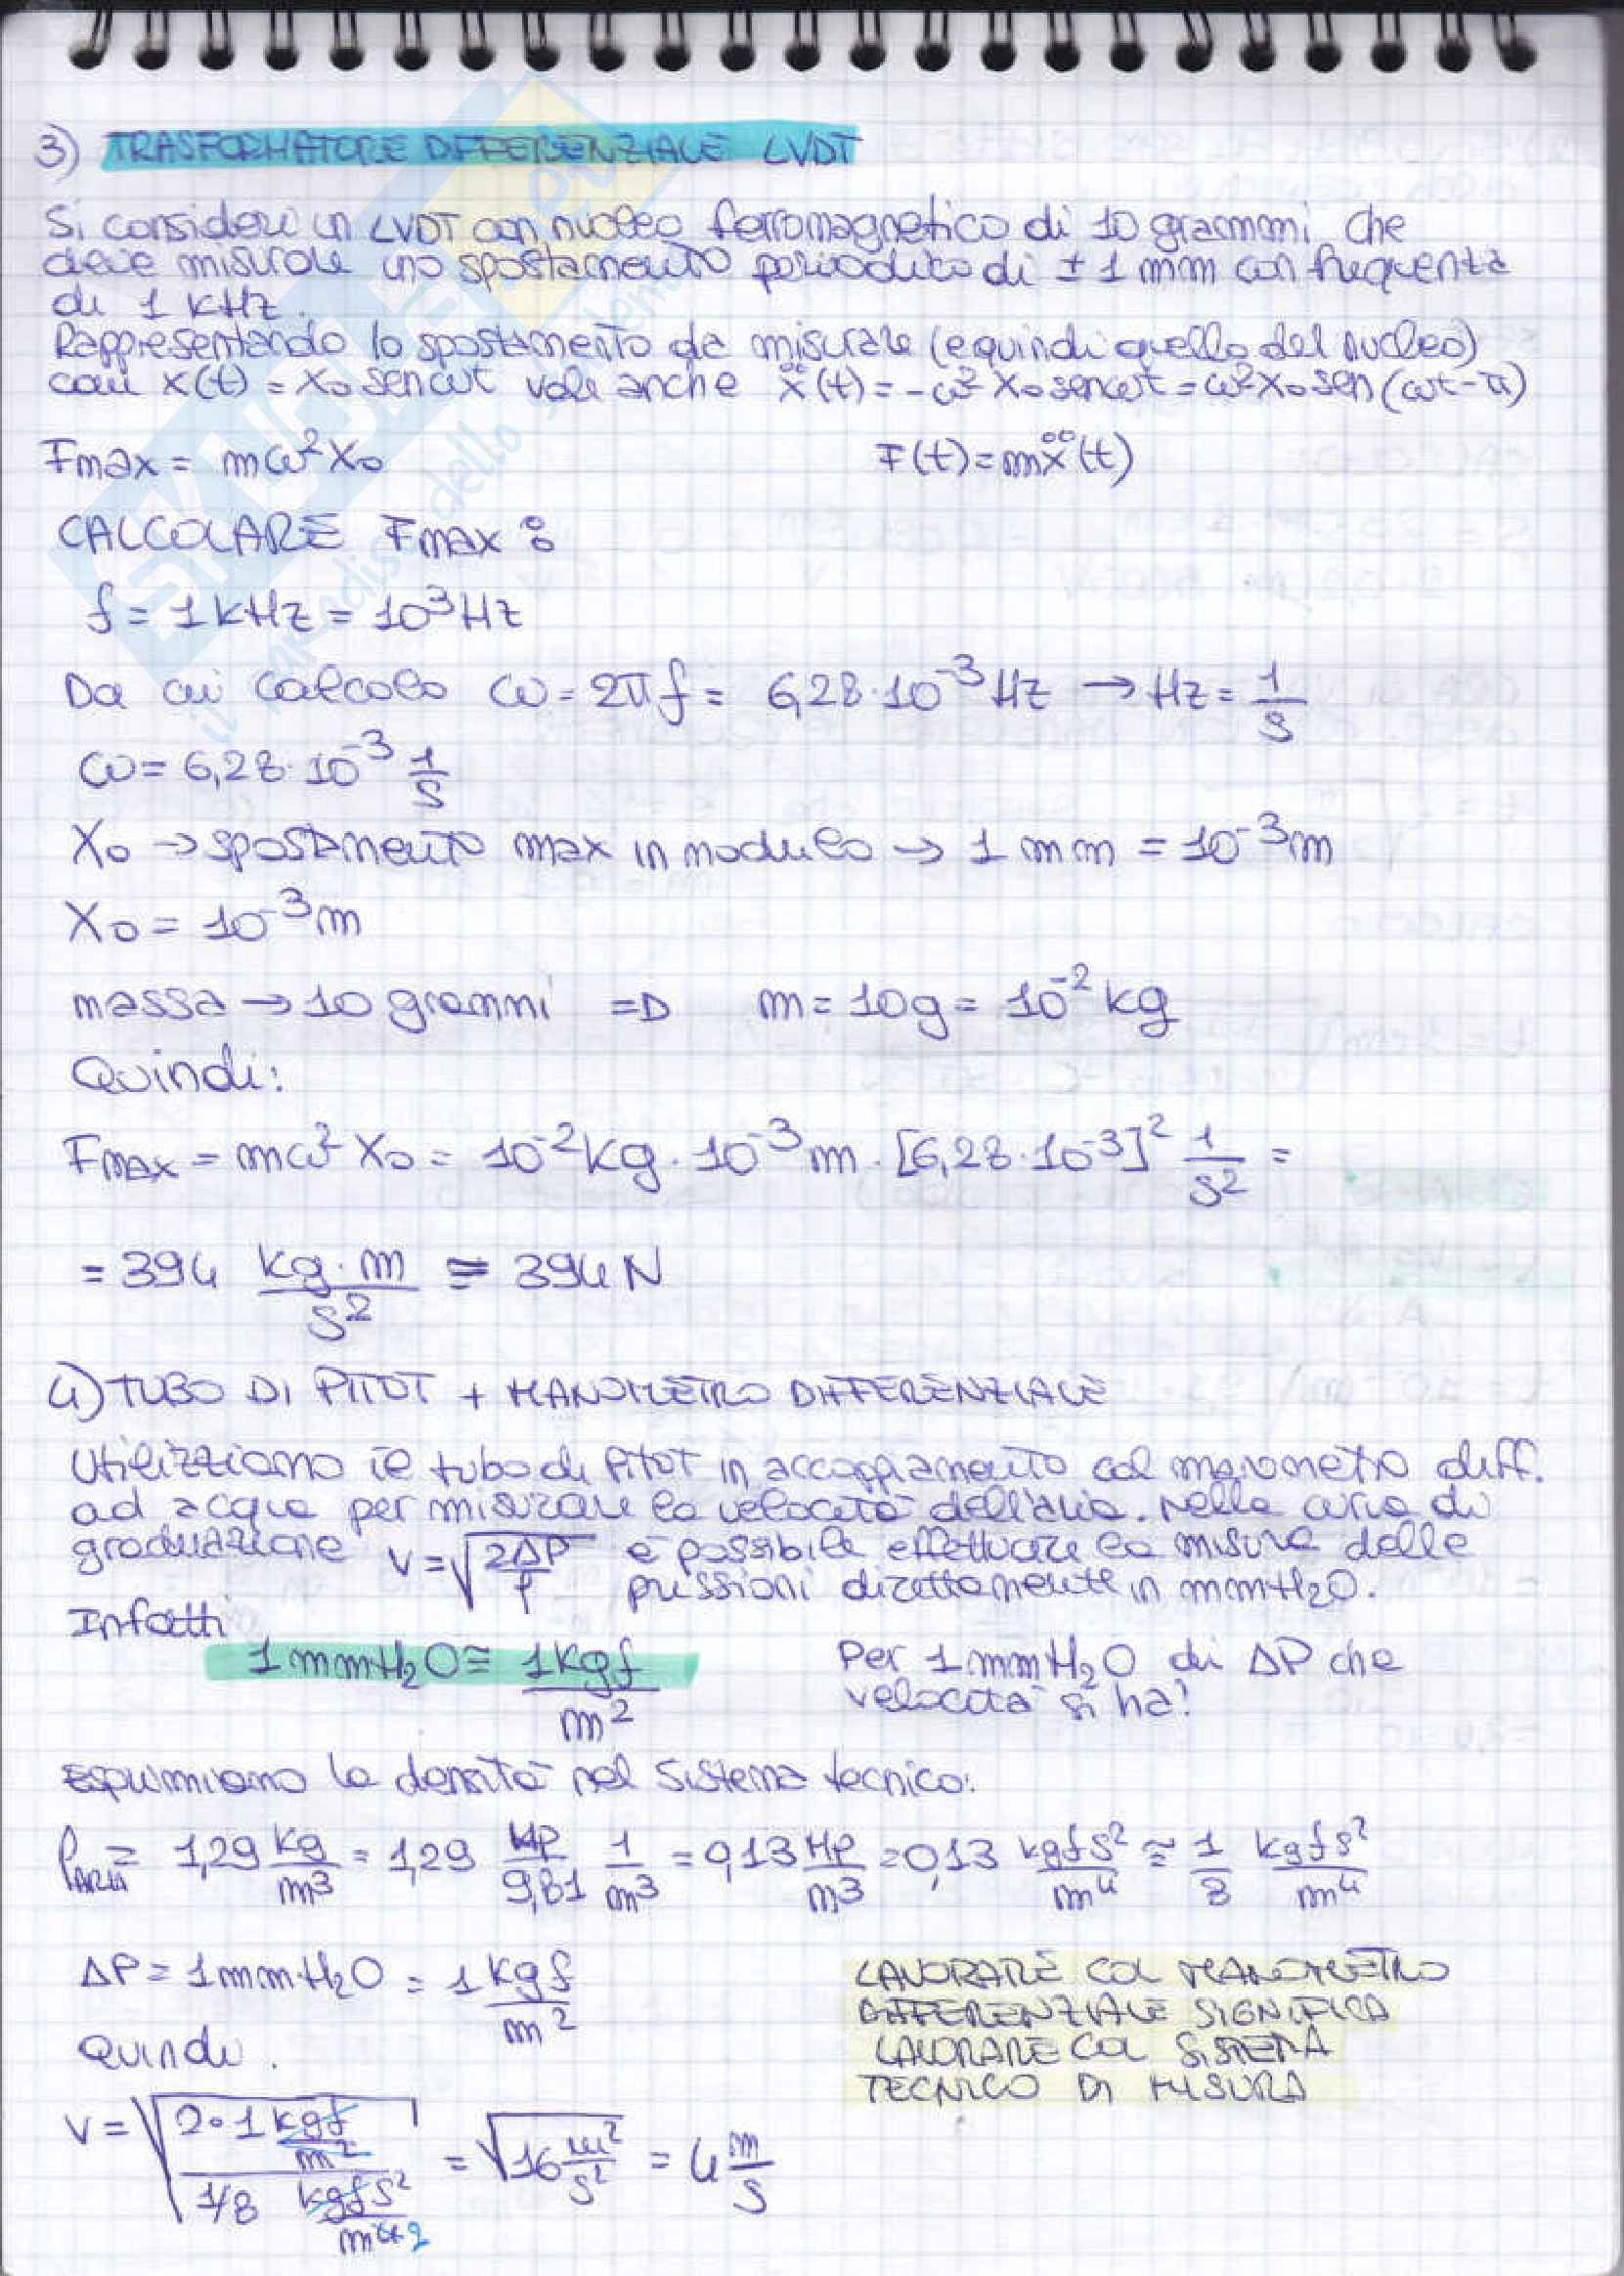 3) TRASFORMATORE DIFFERENZIALE LVDT
Si consideri un LVDT con nucleo ferromagnetico di 10 grammi che
deve misurare uno spostamento periodico di ± 1 mm con frequenza
di 1 kHz.
Rappresentando lo spostamento da misurare (e quindi quello del nucleo)
con x(t) = X₀ sen ωt vale anche ẍ(t) = -ω² X₀ sen ωt = ω² X₀ sen (ωt-π)
Fmax = mω²X₀ F(t) = mẍ(t)
CALCOLARE Fmax:
f = 1 kHz = 10³ Hz
Da cui calcolo ω = 2πf = 6,28·10⁻³ Hz → Hz = 1/s
ω = 6,28·10⁻³ 1/s
X₀ → spostamento max in modulo → 1 mm = 10⁻³ m
X₀ = 10⁻³ m
massa → 10 grammi => m = 10g = 10⁻² kg
Quindi:
Fmax = mω² X₀ = 10⁻² kg · 10⁻³ m · [6,28·10⁻³]² 1/s² =
= 394 kg·m/s² ≅ 394 N
4) TUBO DI PITOT + MANOMETRO DIFFERENZIALE
Utilizziamo il tubo di Pitot in accoppiamento col manometro diff.
ad acqua per misurare la velocità dell'aria. Nella curva di
graduazione v = √(2ΔP/ρ) è possibile effettuare la misura delle
pressioni direttamente in mmH₂O.
Infatti
1 mmH₂O ≅ 1 kgf/m² Per 1 mmH₂O di ΔP che
velocità si ha?
Esprimiamo la densità nel sistema tecnico:
ρARIA = 1,29 kg/m³ = 1,29 Kp/9,81 1/m³ = 0,13 Kp/m³ = 0,13 kgf s²/m⁴ ≅ 1/8 kgf s²/m⁴
ΔP = 1 mmH₂O = 1 kgf/m²
LAVORARE COL MANOMETRO
DIFFERENZIALE SIGNIFICA
LAVORARE COL SISTEMA
TECNICO DI MISURA
Quindi.
v = √(2·1 kgf/m² / 1/8 kgf s²/m⁴ ²) = √(16 m²/s²) = 4 m/s
SKUOLA.net
il paradiso dello studente